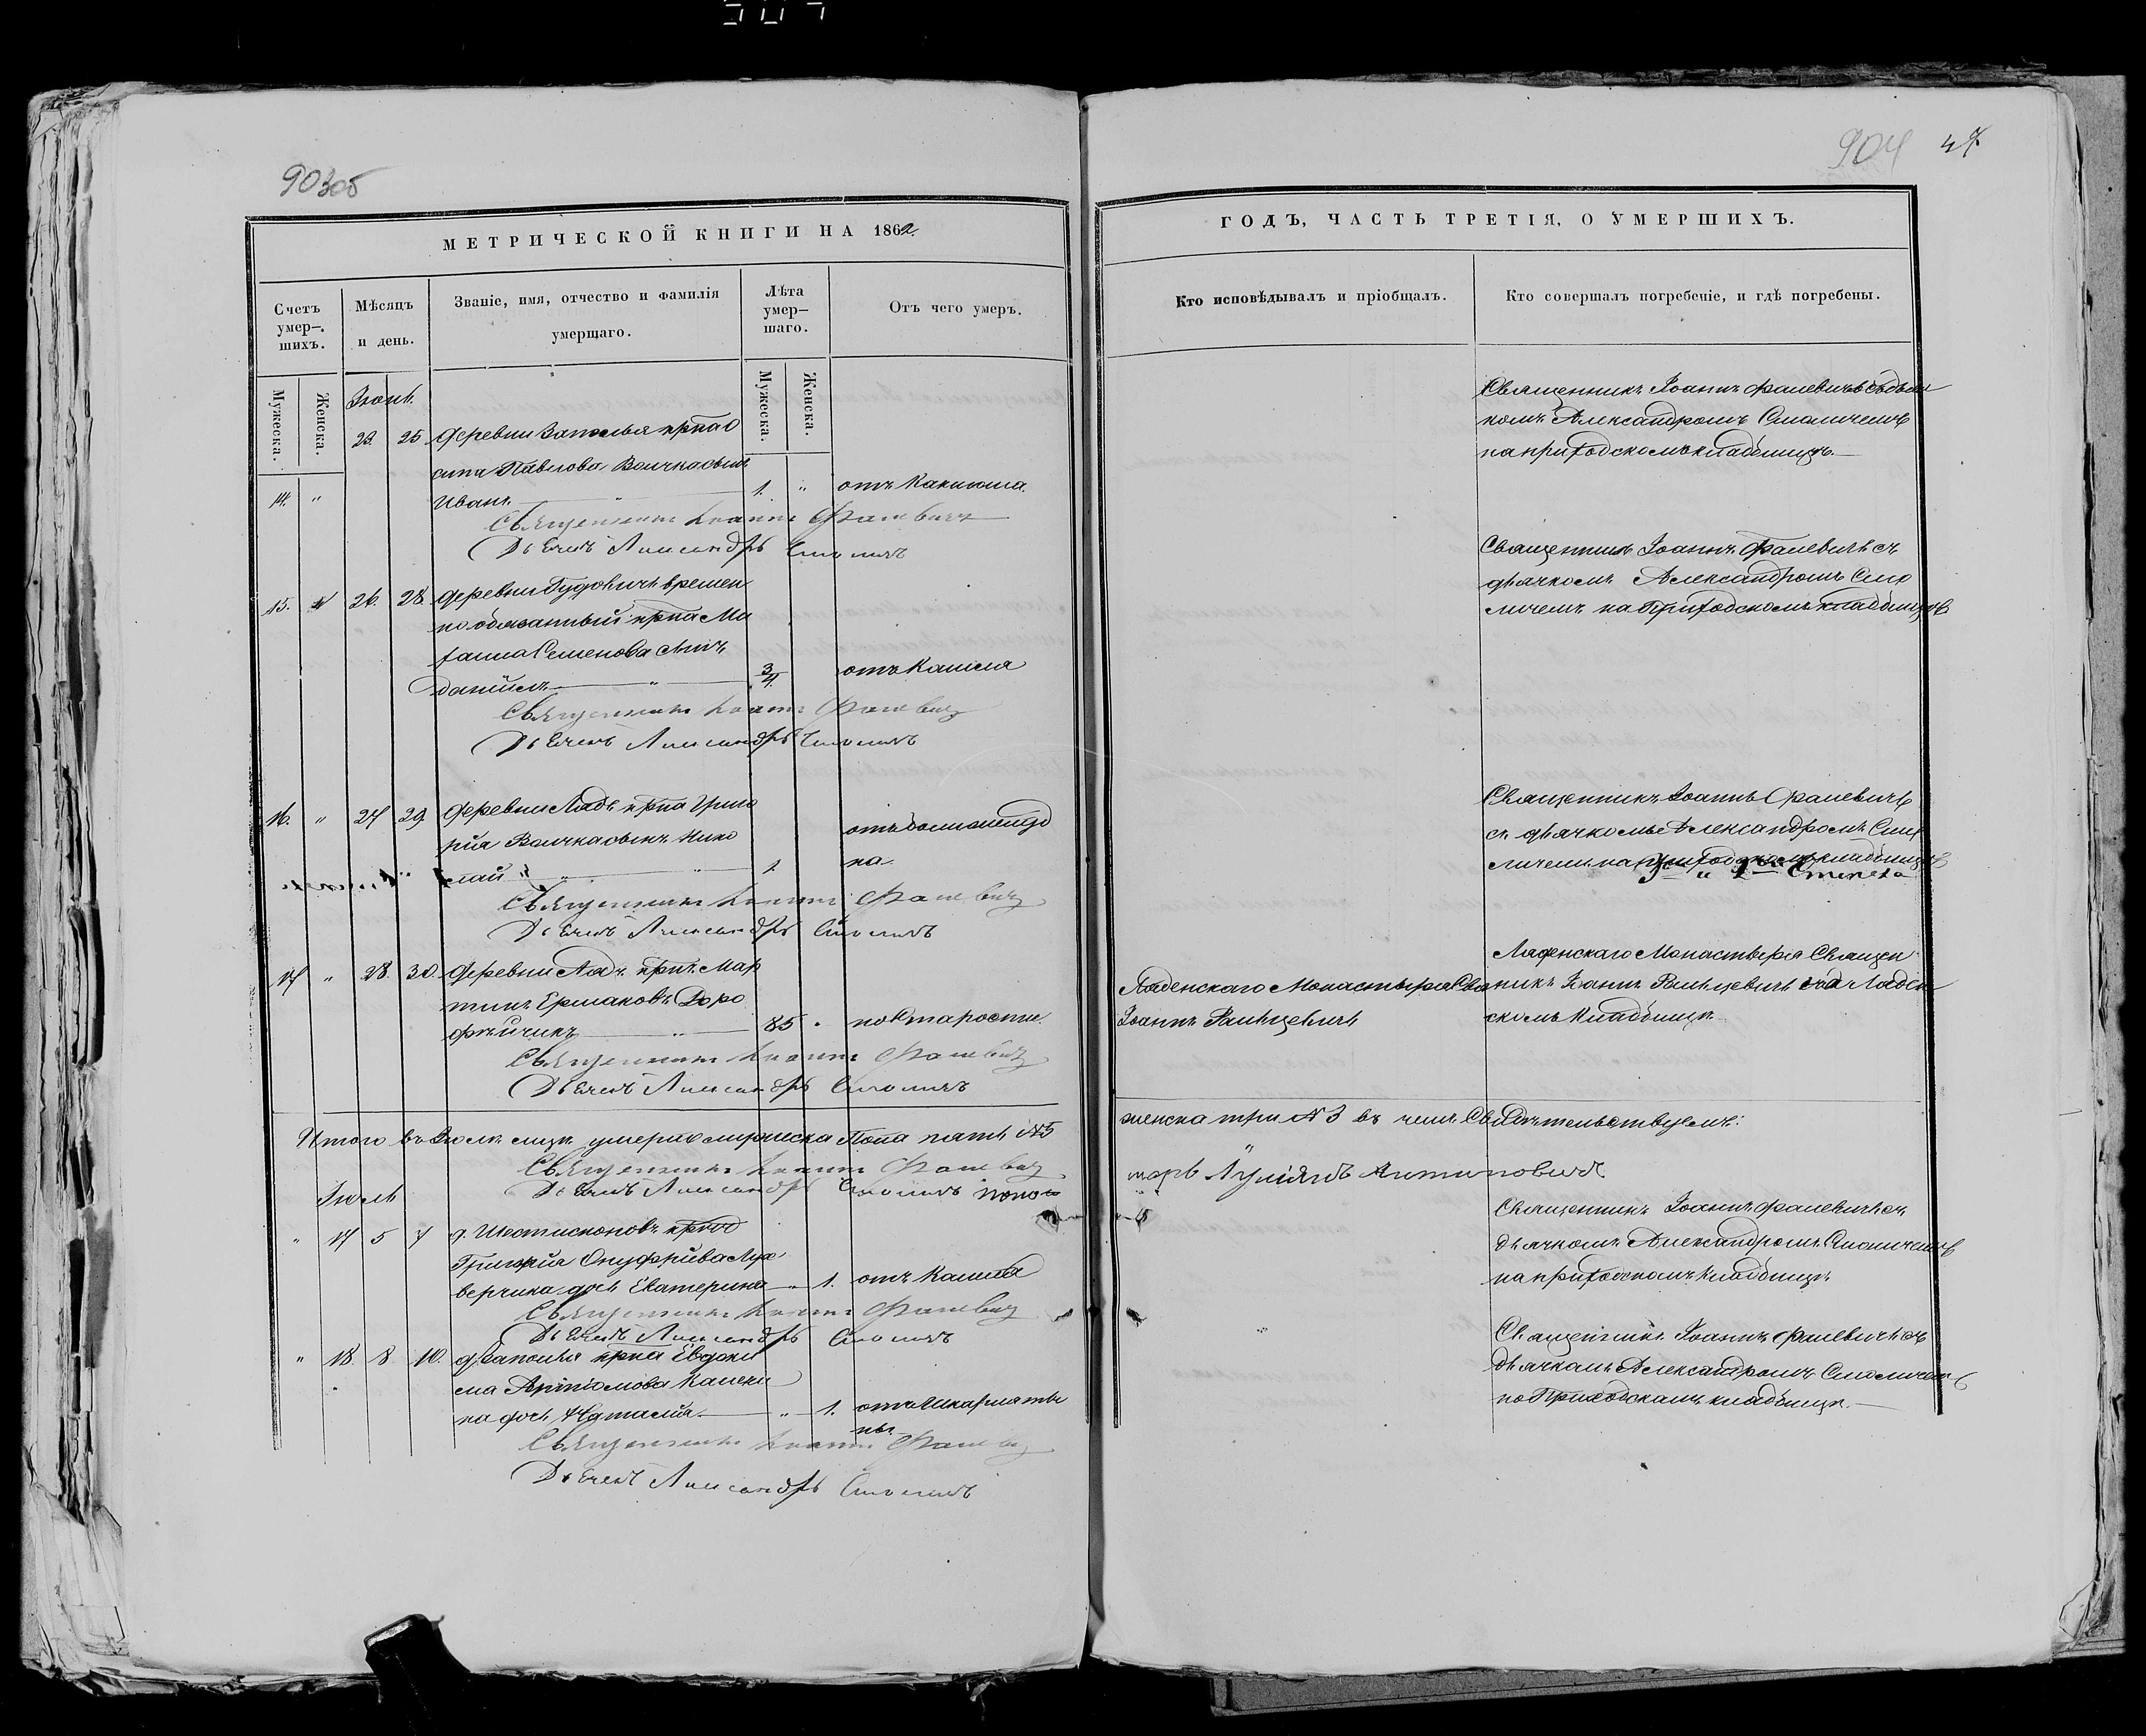 903об
МЕТРИЧЕСКОЙ КНИГИ НА 1862.
Счетъ умер-. шихъ.
Мѣсяцъ и день.
Званіе, имя, отчество и фамилія умершаго.
Лѣта умер- шаго.
Отъ чего умеръ.
Мужеска.
Женска.
Мужеска.
Женска.
23. 25 деревни Заполья крпа О
сипа Павлова Воличка сынъ
14. " Иванъ 1. " отъ Кашлюша.
Священникъ Іоаннъ Фалевичъ
Дьячекъ Александръ Смоличъ
15. " 26. 28 деревни Гудовичъ времен
но обязанный крпа Ми
хаила Семенова сынъ
Даніилъ " 3/4 отъ Кашля
Священникъ Іоаннъ Фалевичъ
Дьячекъ Александръ Смоличъ
16. " 27 29 деревни Лядъ крпа Григо
рія Воличка сынъ Нико
лай " 1.
Священникъ Іоаннъ Фалевичъ
Дьячекъ Александръ Смоличъ
17 " 28. 30. деревни Лядъ крпъ Мар
тинъ Ермаковъ Доро
фейчикъ " 85 " по Старости
Священникъ Іоаннъ Фалевичъ
Дьячекъ Александръ Смоличъ
Итого въ мсцѣ умерло мужеска Пола пять №5
Священникъ Іоаннъ Фалевичъ
Іюль Дьячекъ Александръ Смоличъ поно-
" 17 5 7 д. крпа
Григорія Онуфріева
верчика дочь Екатерина " 1. отъ Кашля
Священникъ Іоаннъ Фалевичъ
Дьячекъ Александръ Смоличъ
" 18. 8. 10. д. Заполья крпа Евдоки
ма
на дочь Наталія " 1. отъ Шкарлати
ны
Священникъ Іоаннъ Фалевичъ
Дьячекъ Александръ Смоличъ
904 47
ГОДЪ, ЧАСТЬ ТРЕТІЯ, О УМЕРШИХЪ.
Кто исповѣдывалъ и пріобщалъ.
Кто совершалъ погребеніе, и гдѣ погребены.
Священникъ Іоаннъ Фалевичъ съ дьяч
комъ Александромъ Смоличемъ
на приходскомъ кладбищѣ.
Священникъ Іоаннъ Фалевичъ съ
дьячкомъ Александромъ Смо
личемъ на Приходскомъ кладбищѣ
Священникъ Іоаннъ Фалевичъ
съ дьячкомъ Александромъ Смо
личемъ на приходскомъ кладбищѣ
Ляденскаго Монастыря Священ
Ляденскаго Монастыря Свя никъ Іоаннъ на Ляден
Іоаннъ скомъ Кладбищѣ
женска три №3 въ чемъ Свидѣтельствуемъ:
марь Антиповичъ
Священникъ Іоаннъ Фалевичъ съ
дьячкомъ Александромъ Смоличемъ
на приходскомъ кладбищѣ
Священникъ Іоаннъ Фалевичъ съ
дьячкомъ Александромъ Смоличемъ
на Приходскомъ кладбищѣ.